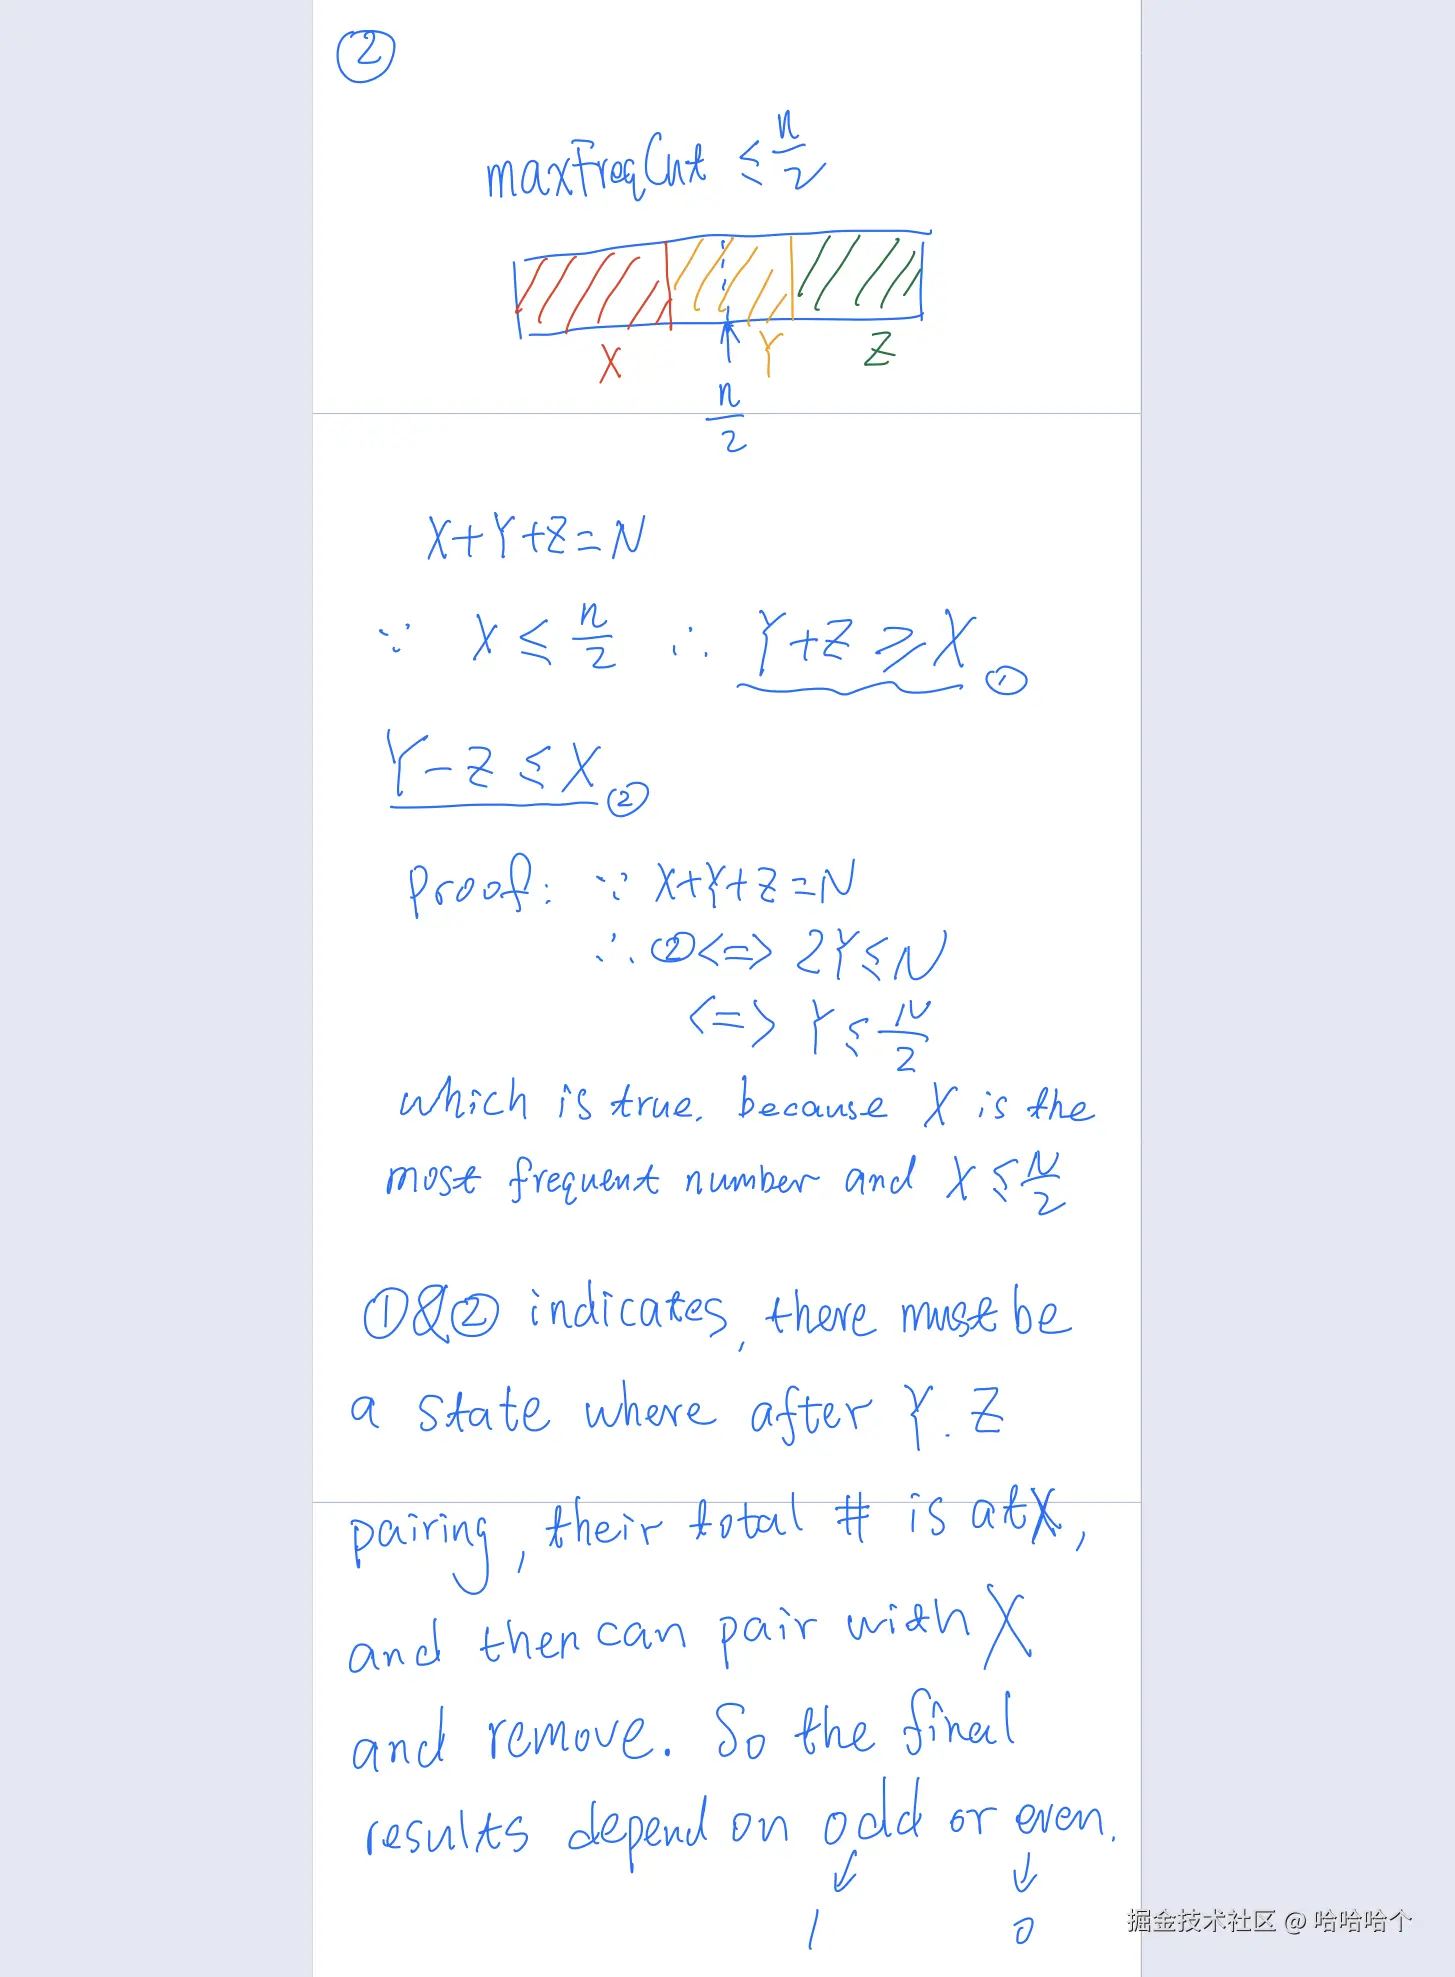 ②
maxFreqCnt ≤ n/2
X Y Z
n/2
X+Y+Z=N
∵ X ≤ n/2 ∴ Y+Z ≥ X ①
Y-Z ≤ X ②
Proof: ∵ X+Y+Z=N
∴ ② <=> 2Y ≤ N
<=> Y ≤ N/2
which is true. because X is the
most frequent number and X ≤ N/2
①&② indicates, there must be
a state where after Y. Z
pairing, their total # is at X,
and then can pair with X
and remove. So the final
results depend on odd or even.
1 0
掘金技术社区 @ 哈哈哈个